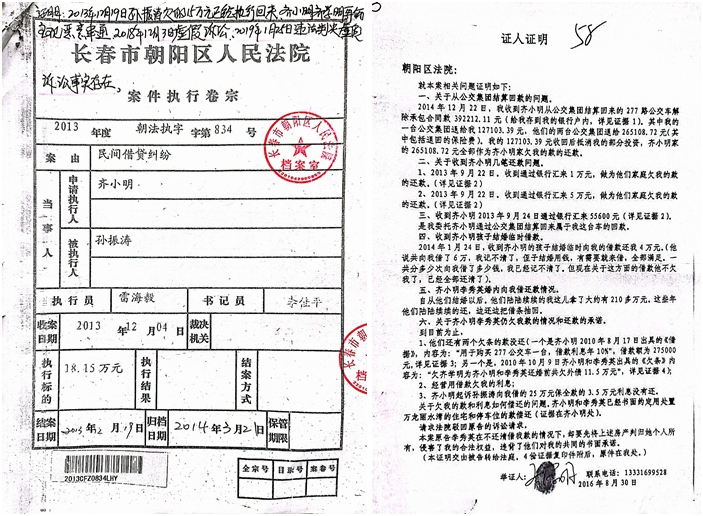 长春市朝阳区人民法院
诉讼事实存在。
案件执行卷宗
2013 年度 朝法执字 字第 834 号
案由 民间借贷纠纷
当事人
申请执行人 齐小明
被执行人 孙振涛
执行员 雷海毅 书记员 李佳平
收案日期 2013 年 12 月 04 日 裁决机关
执行标的 18.15 万元 执行结果 结案方式
结案日期 归档日期 2014 年 3 月 21 日 保管期限
全宗号 目录号 案卷号
2013CFZ0834LHY
长春市朝阳区人民法院
档案室
证人证明
58
朝阳区法院:
就本案相关问题证明如下:
一、关于从公交集团结算回款的问题。
2014 年 12 月 22 日, 我收到齐小明从公交集团结算来的 277 路公交车解
除承包合同款 392212.11 元 (给我存到我的银行户内, 详见证据 1)。其中我的
一台公交集团退给我 127103.39 元, 他们的两台公交集团退给 265108.72 元(其
中包括退回的保险费)。我的 127103.39 元收回后抵消我的部分投资, 齐小明家
的 265108.72 元全部作为齐小明家欠我的款的还款。
二、关于收到齐小明几笔还款问题。
1、2013 年 9 月 22 日, 收到通过银行汇来 1 万元, 做为他们家庭欠我的款
的还款。(详见证据 2)
2、2013 年 9 月 22 日, 收到通过银行汇来 5 万元, 做为他们家庭欠我的款
的还款。(详见证据 2)
三、收到齐小明 2013 年 9 月 24 日通过银行汇来 55600 元 (详见证据 2),
是我委托齐小明通过公交集团结算回来属于我这台车的回款。
四、收到齐小明孩子结婚临时借款。
2014 年 1 月 24 日, 收到齐小明的孩子结婚临时向我的借款还我 4 万元。(他
说共向我借了 6 万, 我记不清了, 但子结婚用钱, 有需要就来借, 全部满足。一
共分多少次向我借了多少钱, 我已经记不清了。但现在关于这方面的借款他不欠
我了, 已经全部还清了)。
五、齐小明李秀英婚内向我借还款情况。
自从他们结婚以后, 他们陆陆续续的我这儿拿了大约有 210 多万元。这些年
他们陆陆续续还, 边还边把借条抽回。
六、关于齐小明李秀英仍欠我款的情况和还款的承诺。
到目前为止。
1、他们还有两个欠条的款没还(一个是齐小明 2010 年 8 月 17 日出具的《借
据》, 内容为: "用于购买 277 公交车一台, 借款利息年 10%" 借款额为 275000
元, 详见证据 3; 另一个是, 2010 年 10 月 9 日齐小明和李秀英出具的《欠条》内
容为: "欠齐年明为齐小明和李秀英还婚前共欠外债 11.5 万元", 详见证据 4)。
2、经营用借款欠我的利息;
3、齐小明起诉孙振涛向我借的 25 万元保全款的 3.5 万元利息没有还。
关于欠我的款和利息如何偿还的问题。齐小明和李秀英已经书面的定用处置
万龙丽水湾的住宅和停车位的款偿还(证据在齐小明处)。
请求法院驳回原告的诉讼请求。
本案原告李秀英在不还清借我款的情况下, 却要先将上述房产判归她个人所
有, 侵害了我的合法权益, 违背了他们对我的共同的书面承诺。
(本证明交由被告转给法庭。4 份证据复印件附后, 原件在我处。)
举证人: 联系电话: 13331699528
2016 年 8 月 30 日